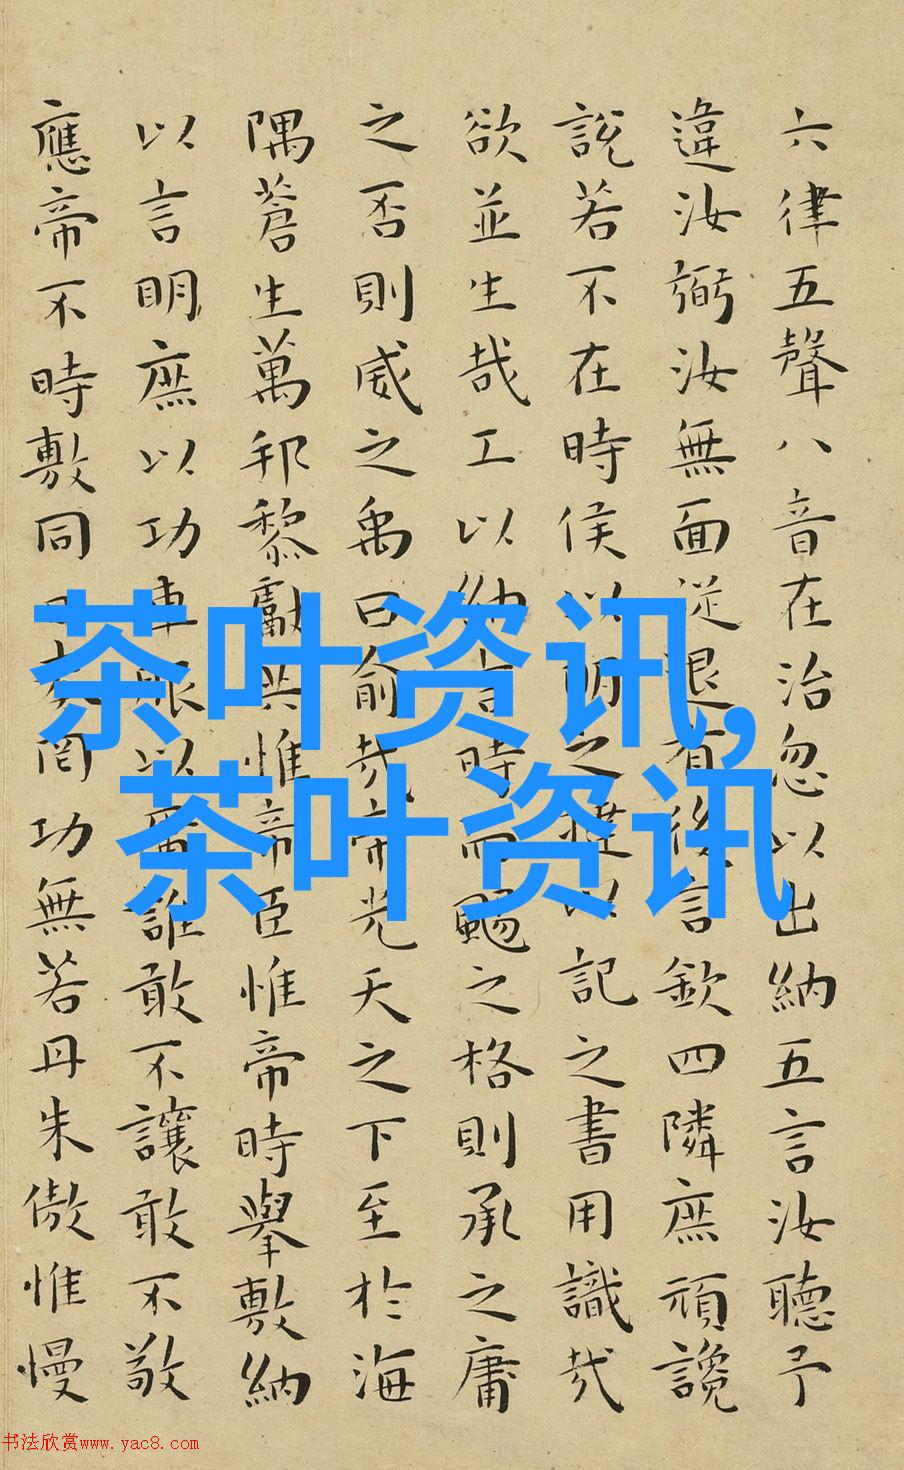 六律五聲八音在治忽以出納五言汝聽予
違汝弼汝無面從退有後言欽四隣庶頑讒
說若不在時侯以明之撻以記之書用識哉
欲並生哉工以納言時而颺之格則承之庸
之否則威之禹曰俞哉帝光天之下至於海
隅蒼生萬邦黎獻共惟帝臣惟帝時舉敷納
以言明庶以功車服以庸誰敢不讓敢不敬
應帝不時敷同日奏罔功無若丹朱傲惟慢
茶叶资讯,
茶叶资讯
书法欣赏www.yac8.com